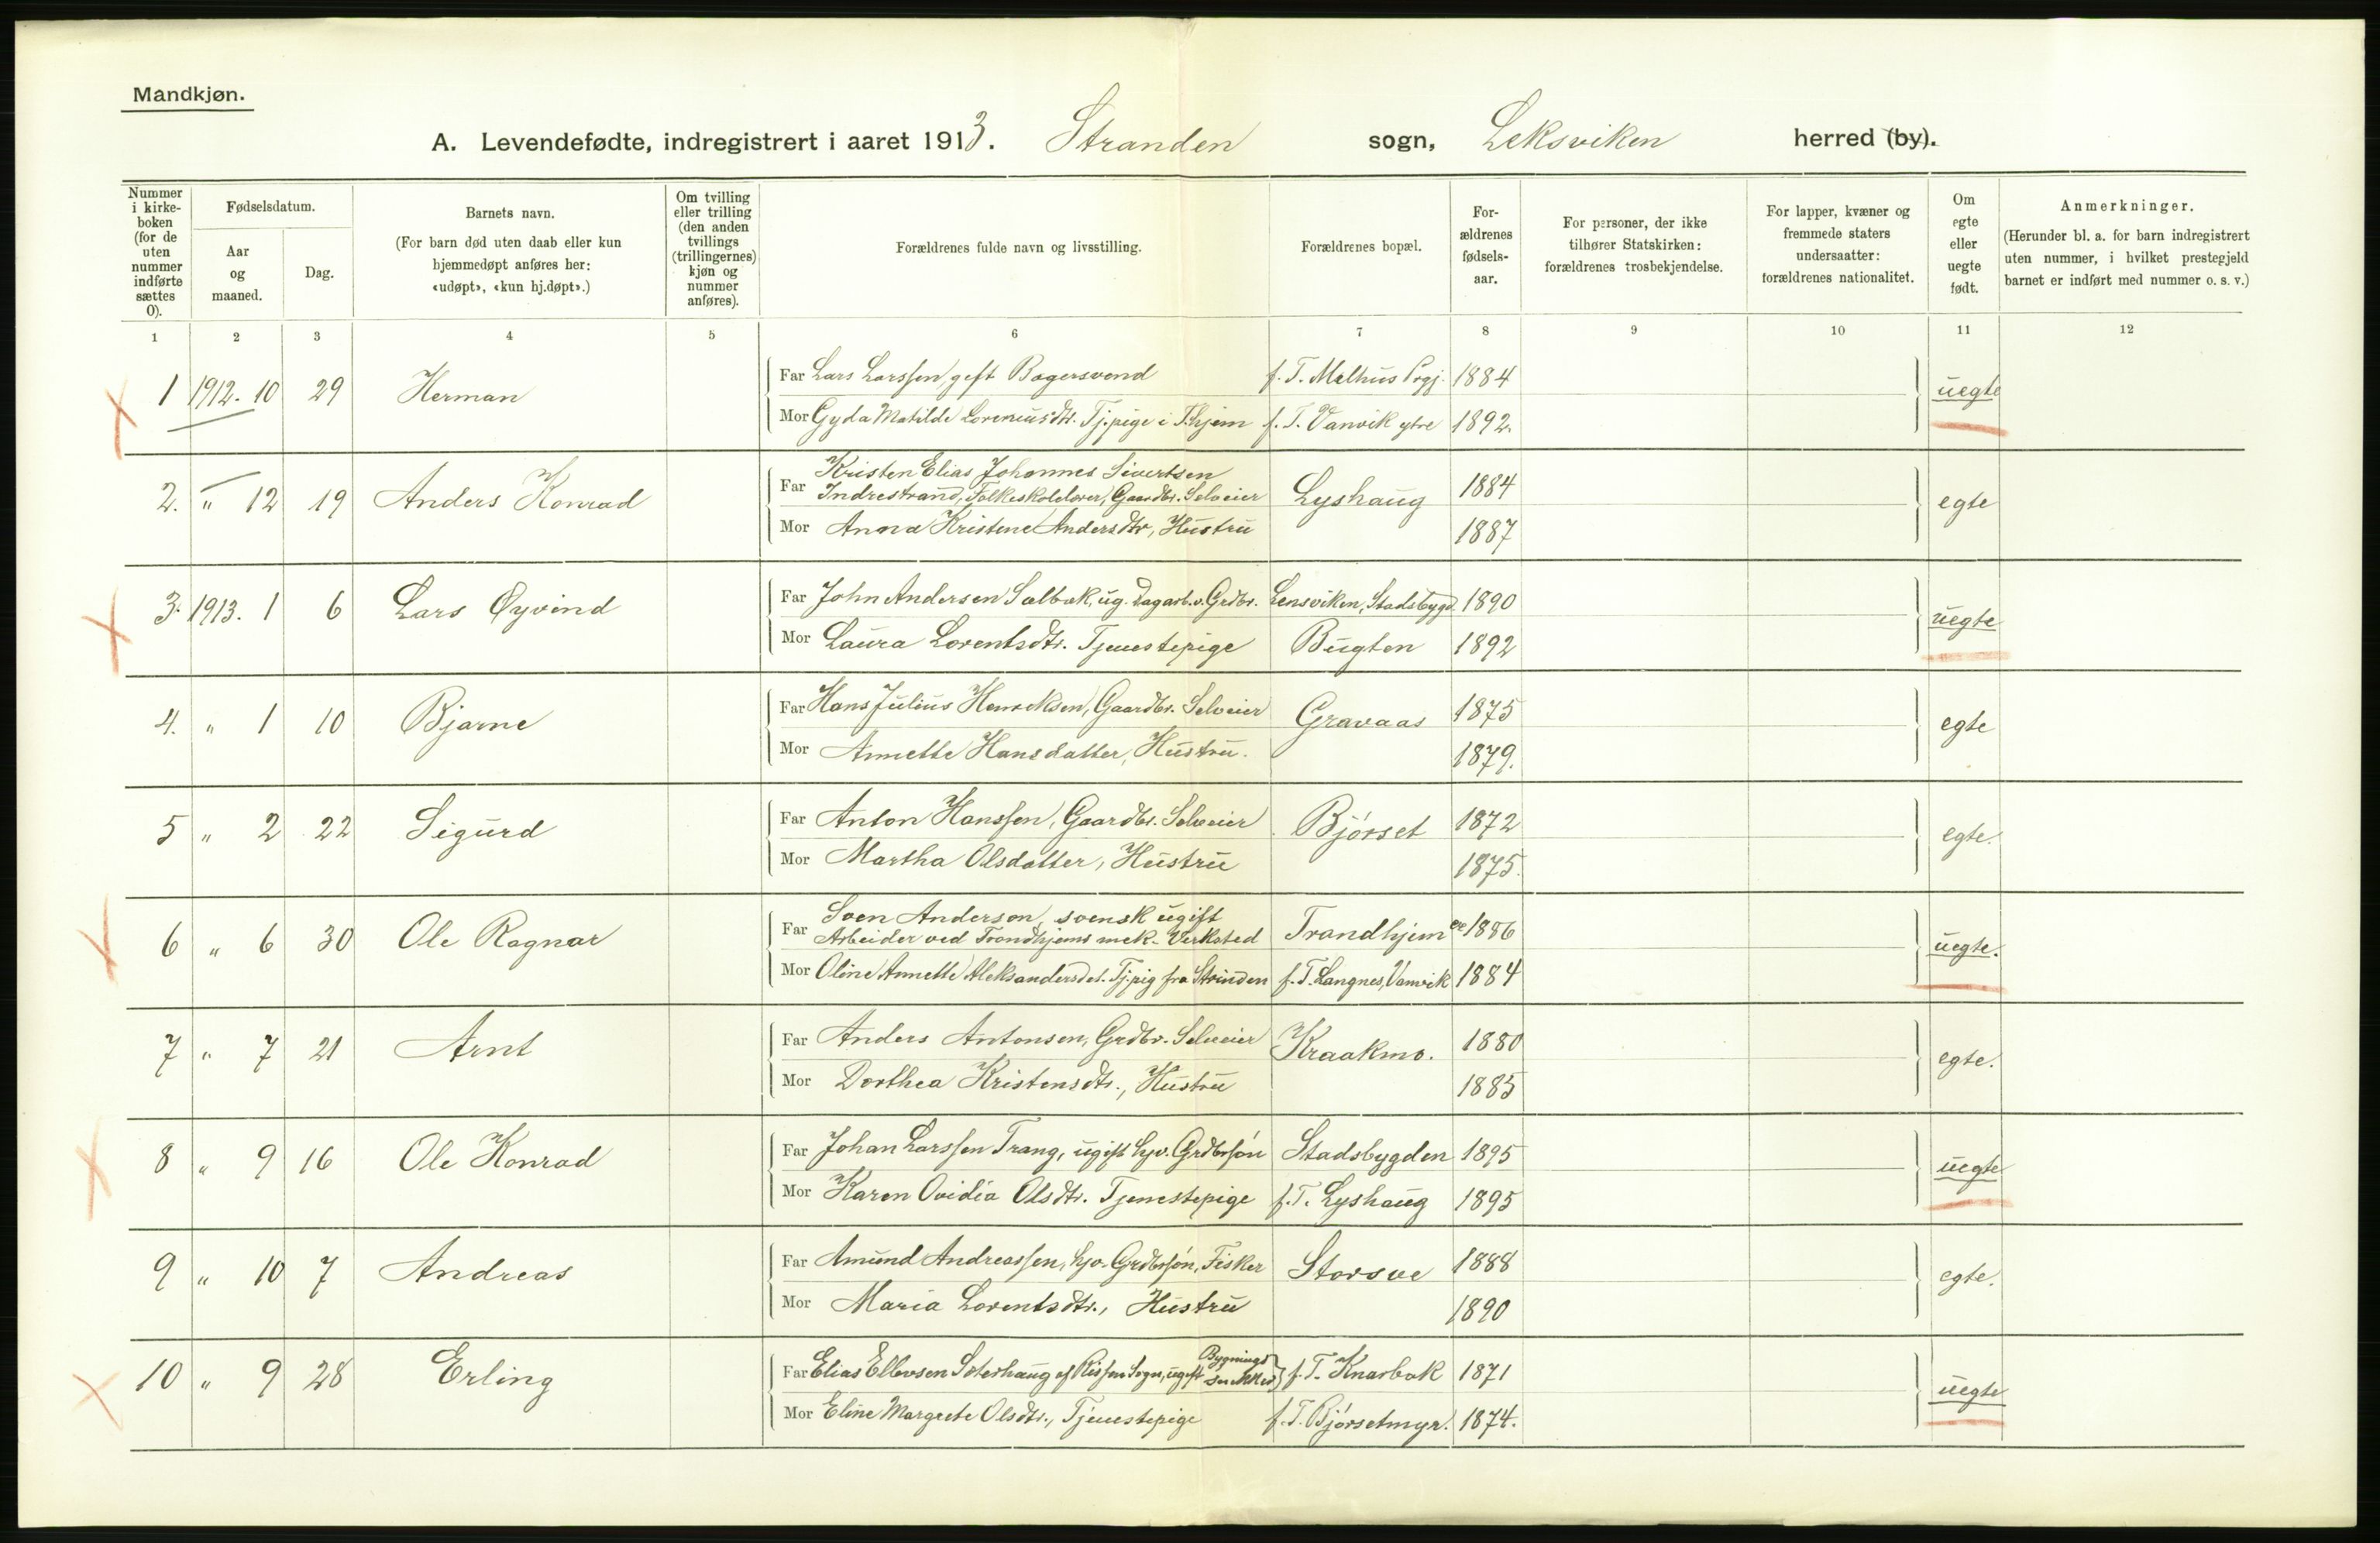 Mandkjøn.
A. Levendefødte, indregistrert i aaret 1913. Stranden sogn, Leksviken herred (by).
Nummer i kirke-boken (for de uten nummer indførte sættes 0).
Fødselsdatum.
Aar og maaned.
Dag.
Barnets navn.
(For barn død uten daab eller kun hjemmedøpt anføres her: «udøpt», «kun hj.døpt».)
Om tvilling eller trilling (den anden tvillings (trillingernes) kjøn og nummer anføres).
Forældrenes fulde navn og livsstilling.
Forældrenes bopæl.
For-ældrenes fødsels-aar.
For personer, der ikke tilhører Statskirken: forældrenes trosbekjendelse.
For lapper, kvæner og fremmede staters undersaatter: forældrenes nationalitet.
Om egte eller uegte født.
Anmerkninger.
(Herunder bl. a. for barn indregistrert uten nummer, i hvilket prestegjeld barnet er indført med nummer o. s. v.)
1 2 3 4 5 6 7 8 9 10 11 12
1 1912. 10 29 Herman Far Lars Larssen, gift Bagersvend f. T. Melhus Prgj. 1884 uegte
Mor Gyda Matilde Loreniusdtr. Tj.pige i T.hjem f. T. Vanvik ytre 1892.
2. " 12 19 Anders Konrad Far Kristen Elias Johannes Sivertsen
Indrestrand, Folkeskolelærer, Gaardbr. Selveier Lyshaug 1884 egte
Mor Anna Kristine Andersdtr, Hustru 1887
3. 1913. 1 6 Lars Øyvind Far John Andersen Sælbak, ug. Dagarb. v. Grdbr. Lensviken, Stadsbygd 1890 uegte
Mor Laura Lorentsdtr. Tjenestepige Bugten 1892
4. " 1 10 Bjarne Far Hans Julius Henriksen, Gaardbr. Selveier Gravaas 1875 egte
Mor Annette Hansdatter, Hustru. 1879.
5 " 2 22 Sigurd Far Anton Hanssen, Gaardbr. Selveier Bjørset 1872 egte.
Mor Martha Olsdatter, Hustru 1875.
6 " 6 30 Ole Ragnar Far Sven Anderson, svensk ugift
Arbeider ved Trondhjems mek. Verksted Trondhjem ca 1886 uegte.
Mor Oline Annette Aleksandersdet. Tj.pig fra Strinden f. T. Langnes, Vanvik 1884
7 " 7 21 Arnt Far Anders Antonsen, Grdbr. Selveier Kraakmo. 1880 egte.
Mor Dorthea Kristensdtr., Hustru 1885
8 " 9 16 Ole Konrad Far Johan Larssen Trang, ugift hjv. Grdbrsøn Stadsbygden 1895 uegte
Mor Karen Ovidia Olsdtr. Tjenestepige f. T. Lyshaug 1895
9 " 10 7 Andreas Far Amund Andreassen, hjv. Grdbrsøn, Fisker Storsve 1888 egte.
Mor Maria Lorentsdtr., Hustru 1890
10 " 9 28 Erling Far Elias Ellevsen Sæterhaug af Rissen Sogn, ugift Bygnings snekker f. T. Knarbok 1871 uegte
Mor Eline Margrete Olsdtr., Tjenestepige f. T. Bjørsetmyr. 1874.